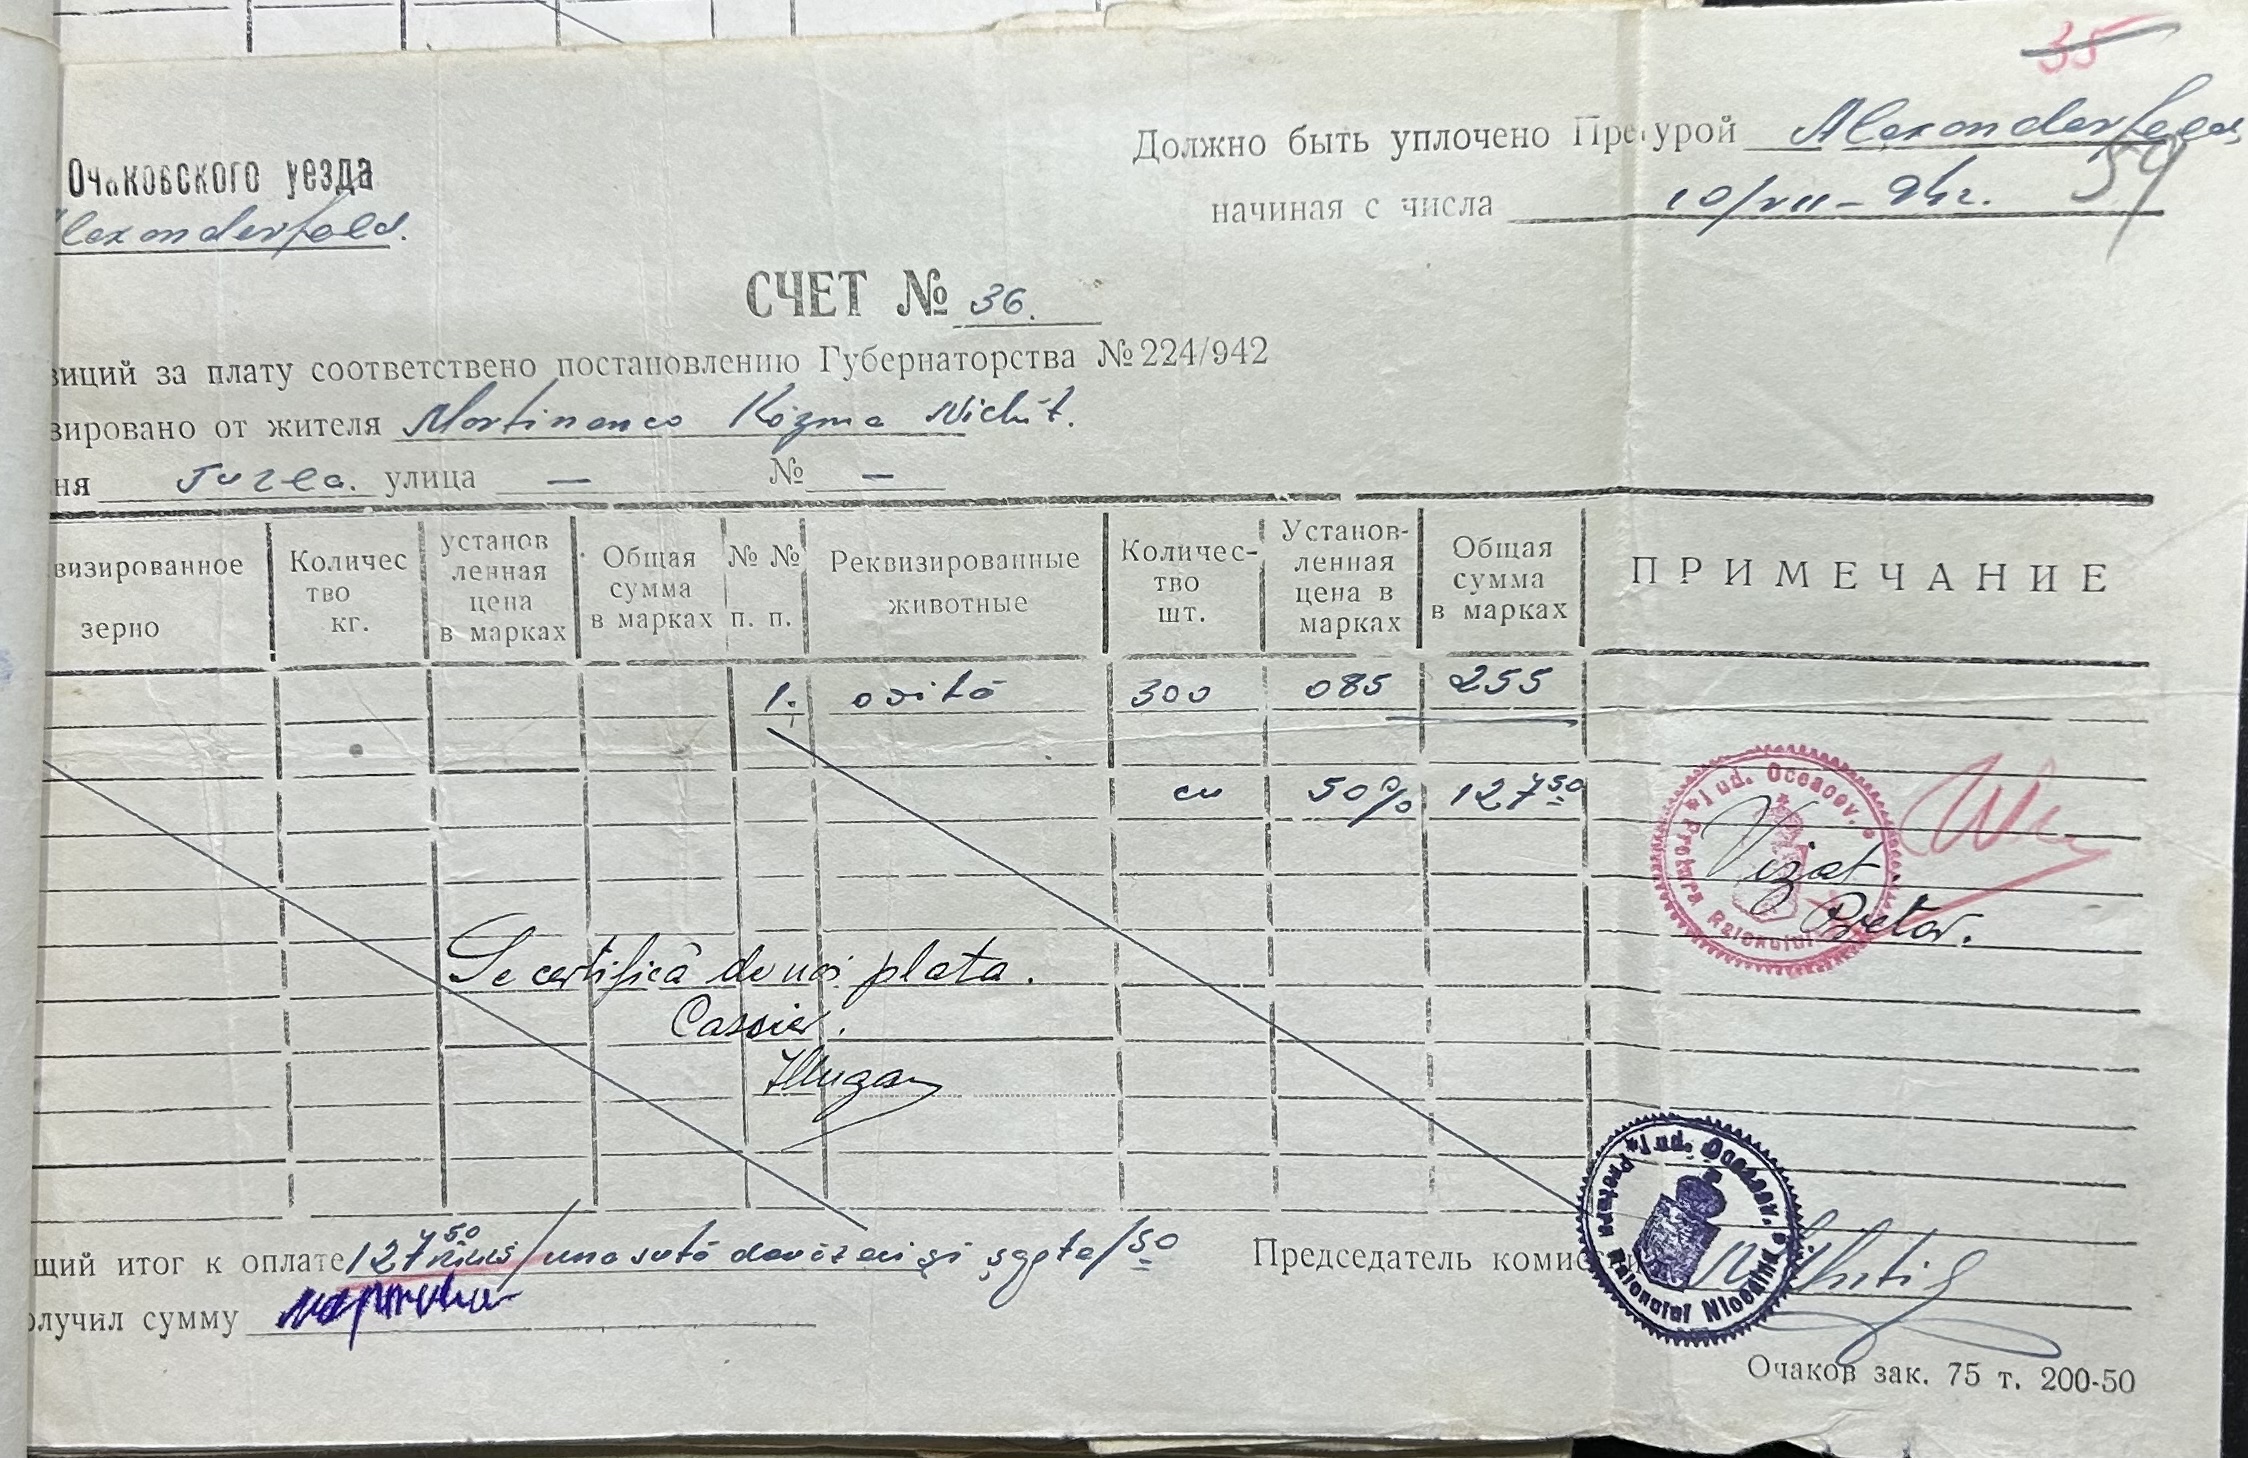 35
Должно быть уплочено Претурой Alexanderfeld
54
начиная с числа 10/VII-94г.
Очаковского уезда
lexanderfeld.
СЧЕТ № 36.
зиций за плату соответствено постановлению Губернаторства № 224/942
зировано от жителя Martinenco Kozma Nichit.
ня улица — № —
визированное зерно
Количес тво кг.
установ ленная цена в марках
Общая сумма в марках
№ № п. п.
Реквизированные животные
Количес- тво шт.
Установ- ленная цена в марках
Общая сумма в марках
ПРИМЕЧАНИЕ
1. 300 085 255
cu 50% 127 50
Jud. Oceacov. Pretura Raionului
Vizat.
Pretor.
Se certifică de noi plata.
Cassier.
щий итог к оплате 127 50 /una sută douăzeci și șapte/50
Председатель комис
Jud. Oceacov. Pretura Raionului
олучил сумму
Очаков зак. 75 т. 200-50